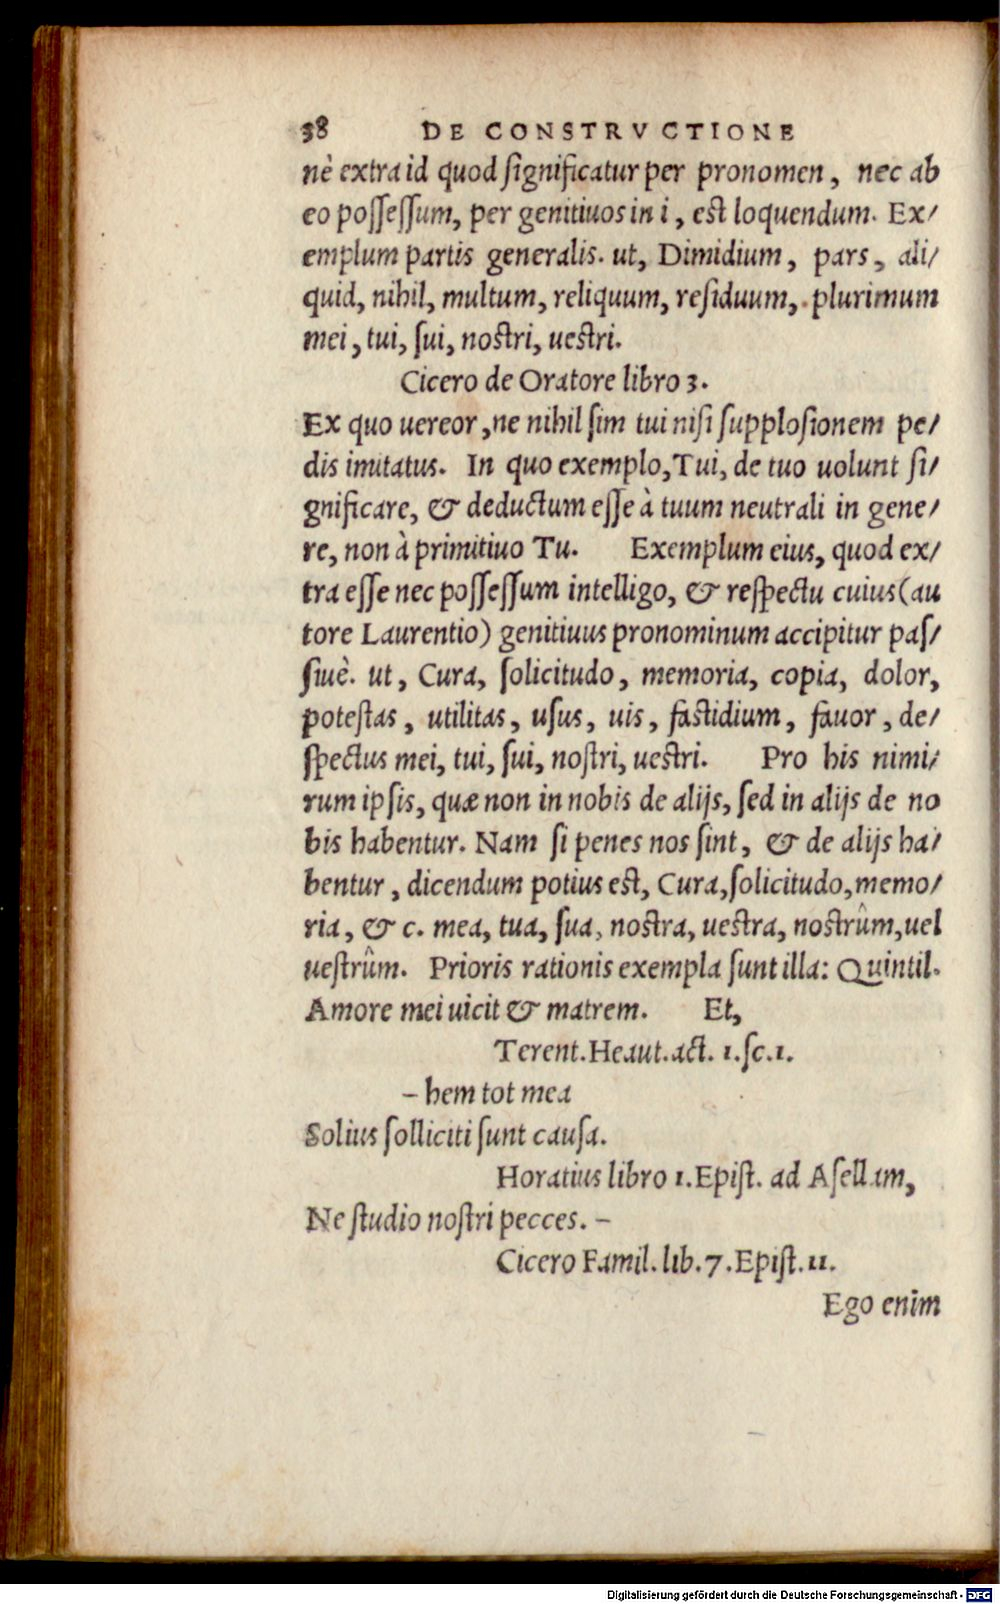 38 DE CONSTRVCTIONE
nè extra id quod ſignificatur per pronomen, nec ab
eo poſſeſſum, per genitiuos in i, est loquendum. Ex/
emplum partis generalis. ut, Dimidium, pars, ali/
quid, nihil, multum, reliquum, reſiduum, plurimum
mei, tui, ſui, nostri, uestri.
Cicero de Oratore libro 3.
Ex quo uereor, ne nihil ſim tui niſi ſupploſionem pe/
dis imitatus. In quo exemplo, Tui, de tuo uolunt ſi/
gnificare, & deductum eſſe à tuum neutrali in gene/
re, non à primitiuo Tu. Exemplum eius, quod ex/
tra eſſe nec poſſeſſum intelligo, & reſpectu cuius (au
tore Laurentio) genitiuus pronominum accipitur paſ/
ſiuè. ut, Cura, ſolicitudo, memoria, copia, dolor,
poteſtas, utilitas, uſus, uis, fastidium, fauor, de/
ſpectus mei, tui, ſui, noſtri, uestri. Pro his nimi/
rum ipſis, quæ non in nobis de alijs, ſed in alijs de no
bis habentur. Nam ſi penes nos ſint, & de alijs ha/
bentur, dicendum potius est, Cura, ſolicitudo, memo/
ria, & c. mea, tua, ſua, nostra, uestra, nostrûm, uel
ueſtrûm. Prioris rationis exempla ſunt illa: Quintil.
Amore mei uicit & matrem. Et,
Terent. Heaut. act. 1. ſc. 1.
– hem tot mea
Solius ſolliciti ſunt cauſa.
Horatius libro 1. Epiſt. ad Aſellam,
Ne ſtudio noſtri pecces. –
Cicero Famil. lib. 7. Epiſt. 11.
Ego enim
Digitalisierung gefördert durch die Deutsche Forschungsgemeinschaft - DFG